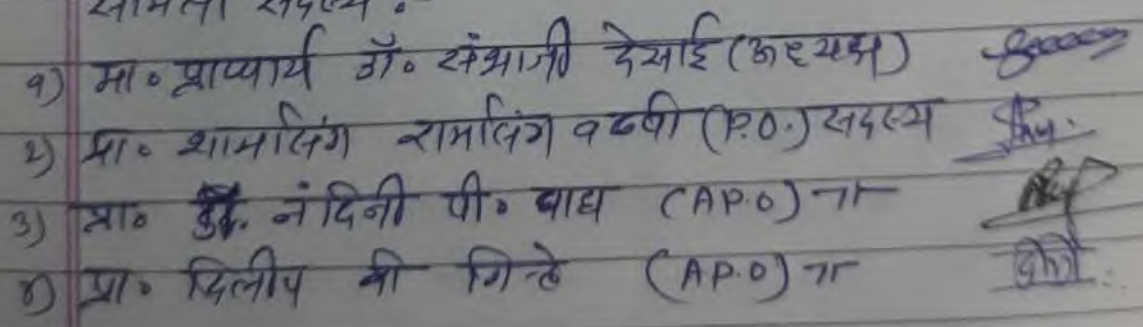 समिती सदस्य :
१) मा. प्राचार्य डॉ. संभाजी देसाई (अध्यक्ष)
२) प्रा. शामलिंग रामलिंग वळवी (P.O.) सदस्य
3) प्रा. नंदिनी पी. वाघ (A.P.O) -॥-
४) प्रा. दिलीप बी गिऱ्हे (A.P.O) -॥-